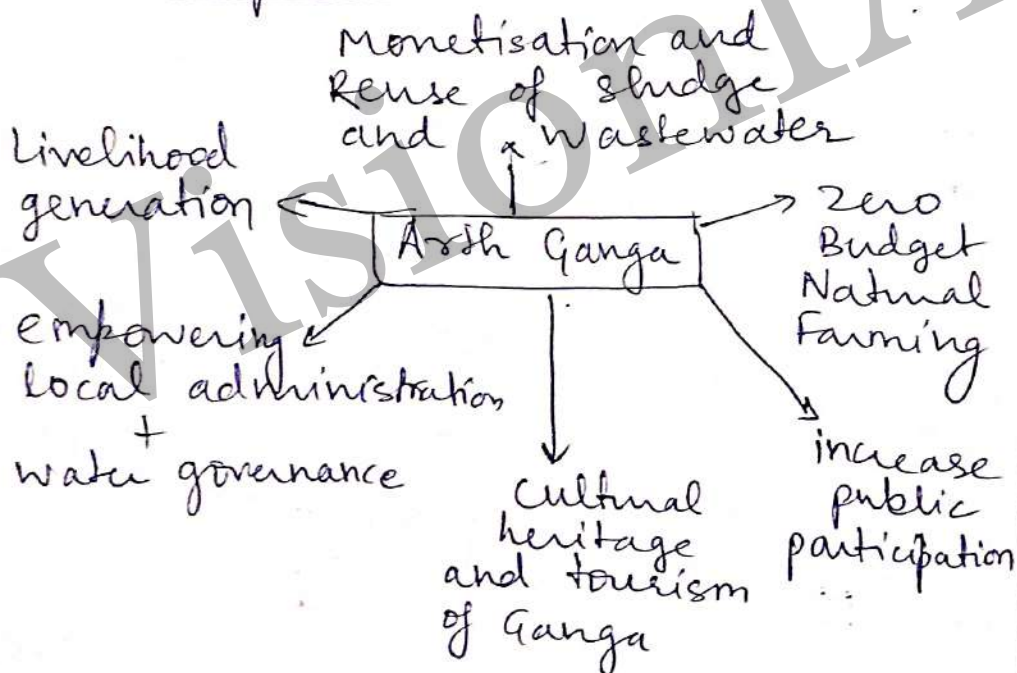 Monetisation and
Reuse of sludge
and wastewater
Livelihood
generation
Arth Ganga
Zero
Budget
Natural
Farming
empowering
local administration
+
water governance
Cultural
heritage
and tourism
of Ganga
increase
public
participation
VisionIA